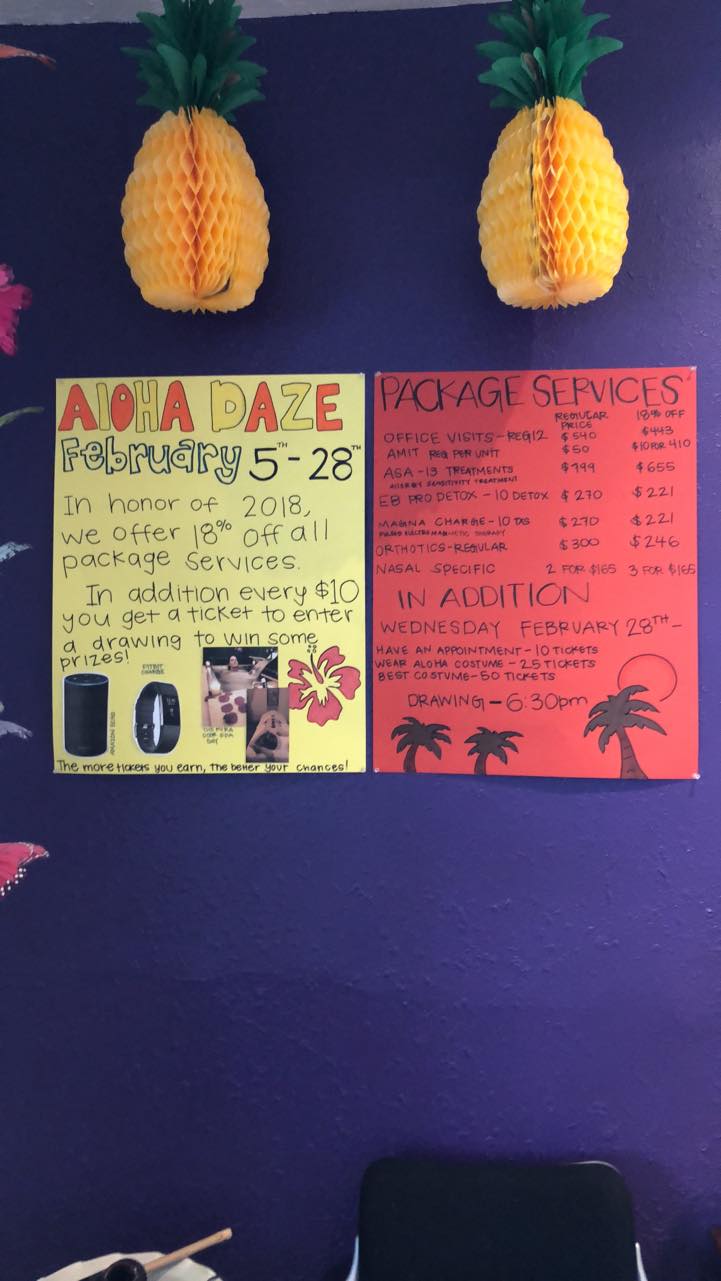 ALOHA DAZE
February 5TH - 28TH
In honor of 2018,
we offer 18% off all
package services.
In addition every $10
you get a ticket to enter
a drawing to win some
prizes!
FITBIT
CHARGE
AMAZON ECHO
DAY
The more tickets you earn, the better your chances!
PACKAGE SERVICES
REGULAR PRICE 18% OFF
OFFICE VISITS - REG12 $540 $443
AMIT REG PER UNIT $50 $10 FOR 410
ASA - 13 TREATMENTS $799 $655
ALLERGY SENSITIVITY TREATMENT
EB PRO DETOX - 10 DETOX $270 $221
MAGNA CHARGE - 10 $270 $221
PULSED ELECTRO MAGNETIC THERAPY
ORTHOTICS - REGULAR $300 $246
NASAL SPECIFIC 2 FOR $165 3 FOR $165
IN ADDITION
WEDNESDAY FEBRUARY 28TH -
HAVE AN APPOINTMENT - 10 TICKETS
WEAR ALOHA COSTUME - 25 TICKETS
BEST COSTUME - 50 TICKETS
DRAWING - 6:30pm